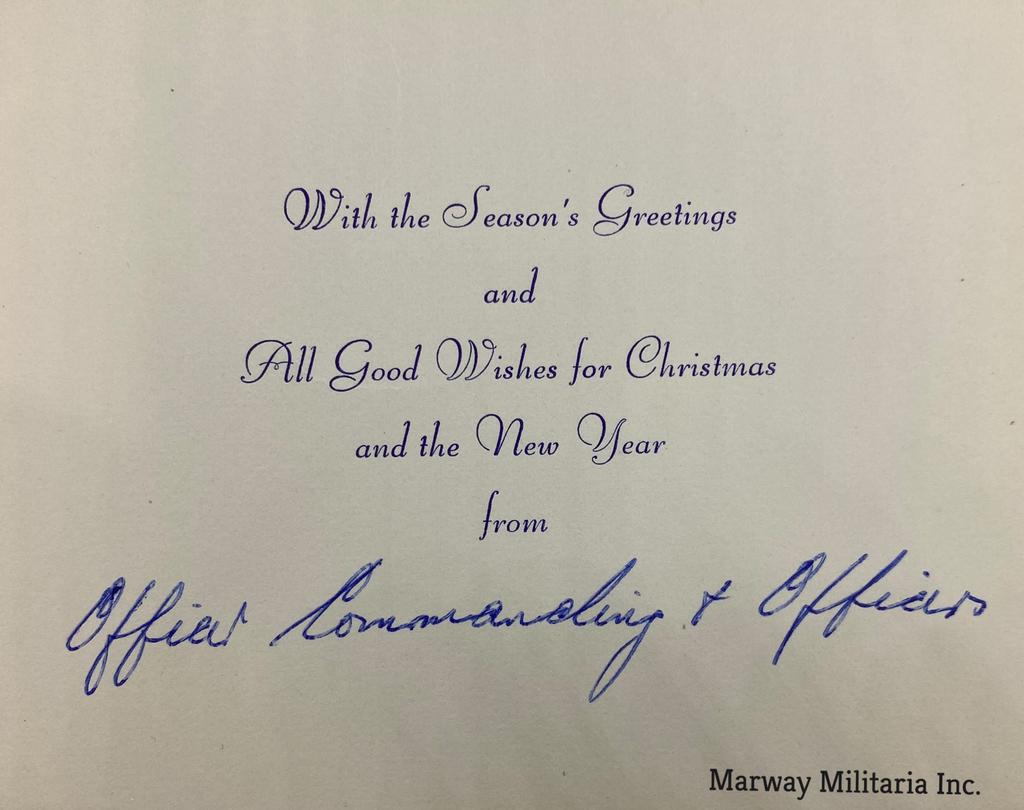 With the Season's Greetings
and
All Good Wishes for Christmas
and the New Year
from
Officer Commanding & Officers
Marway Militaria Inc.